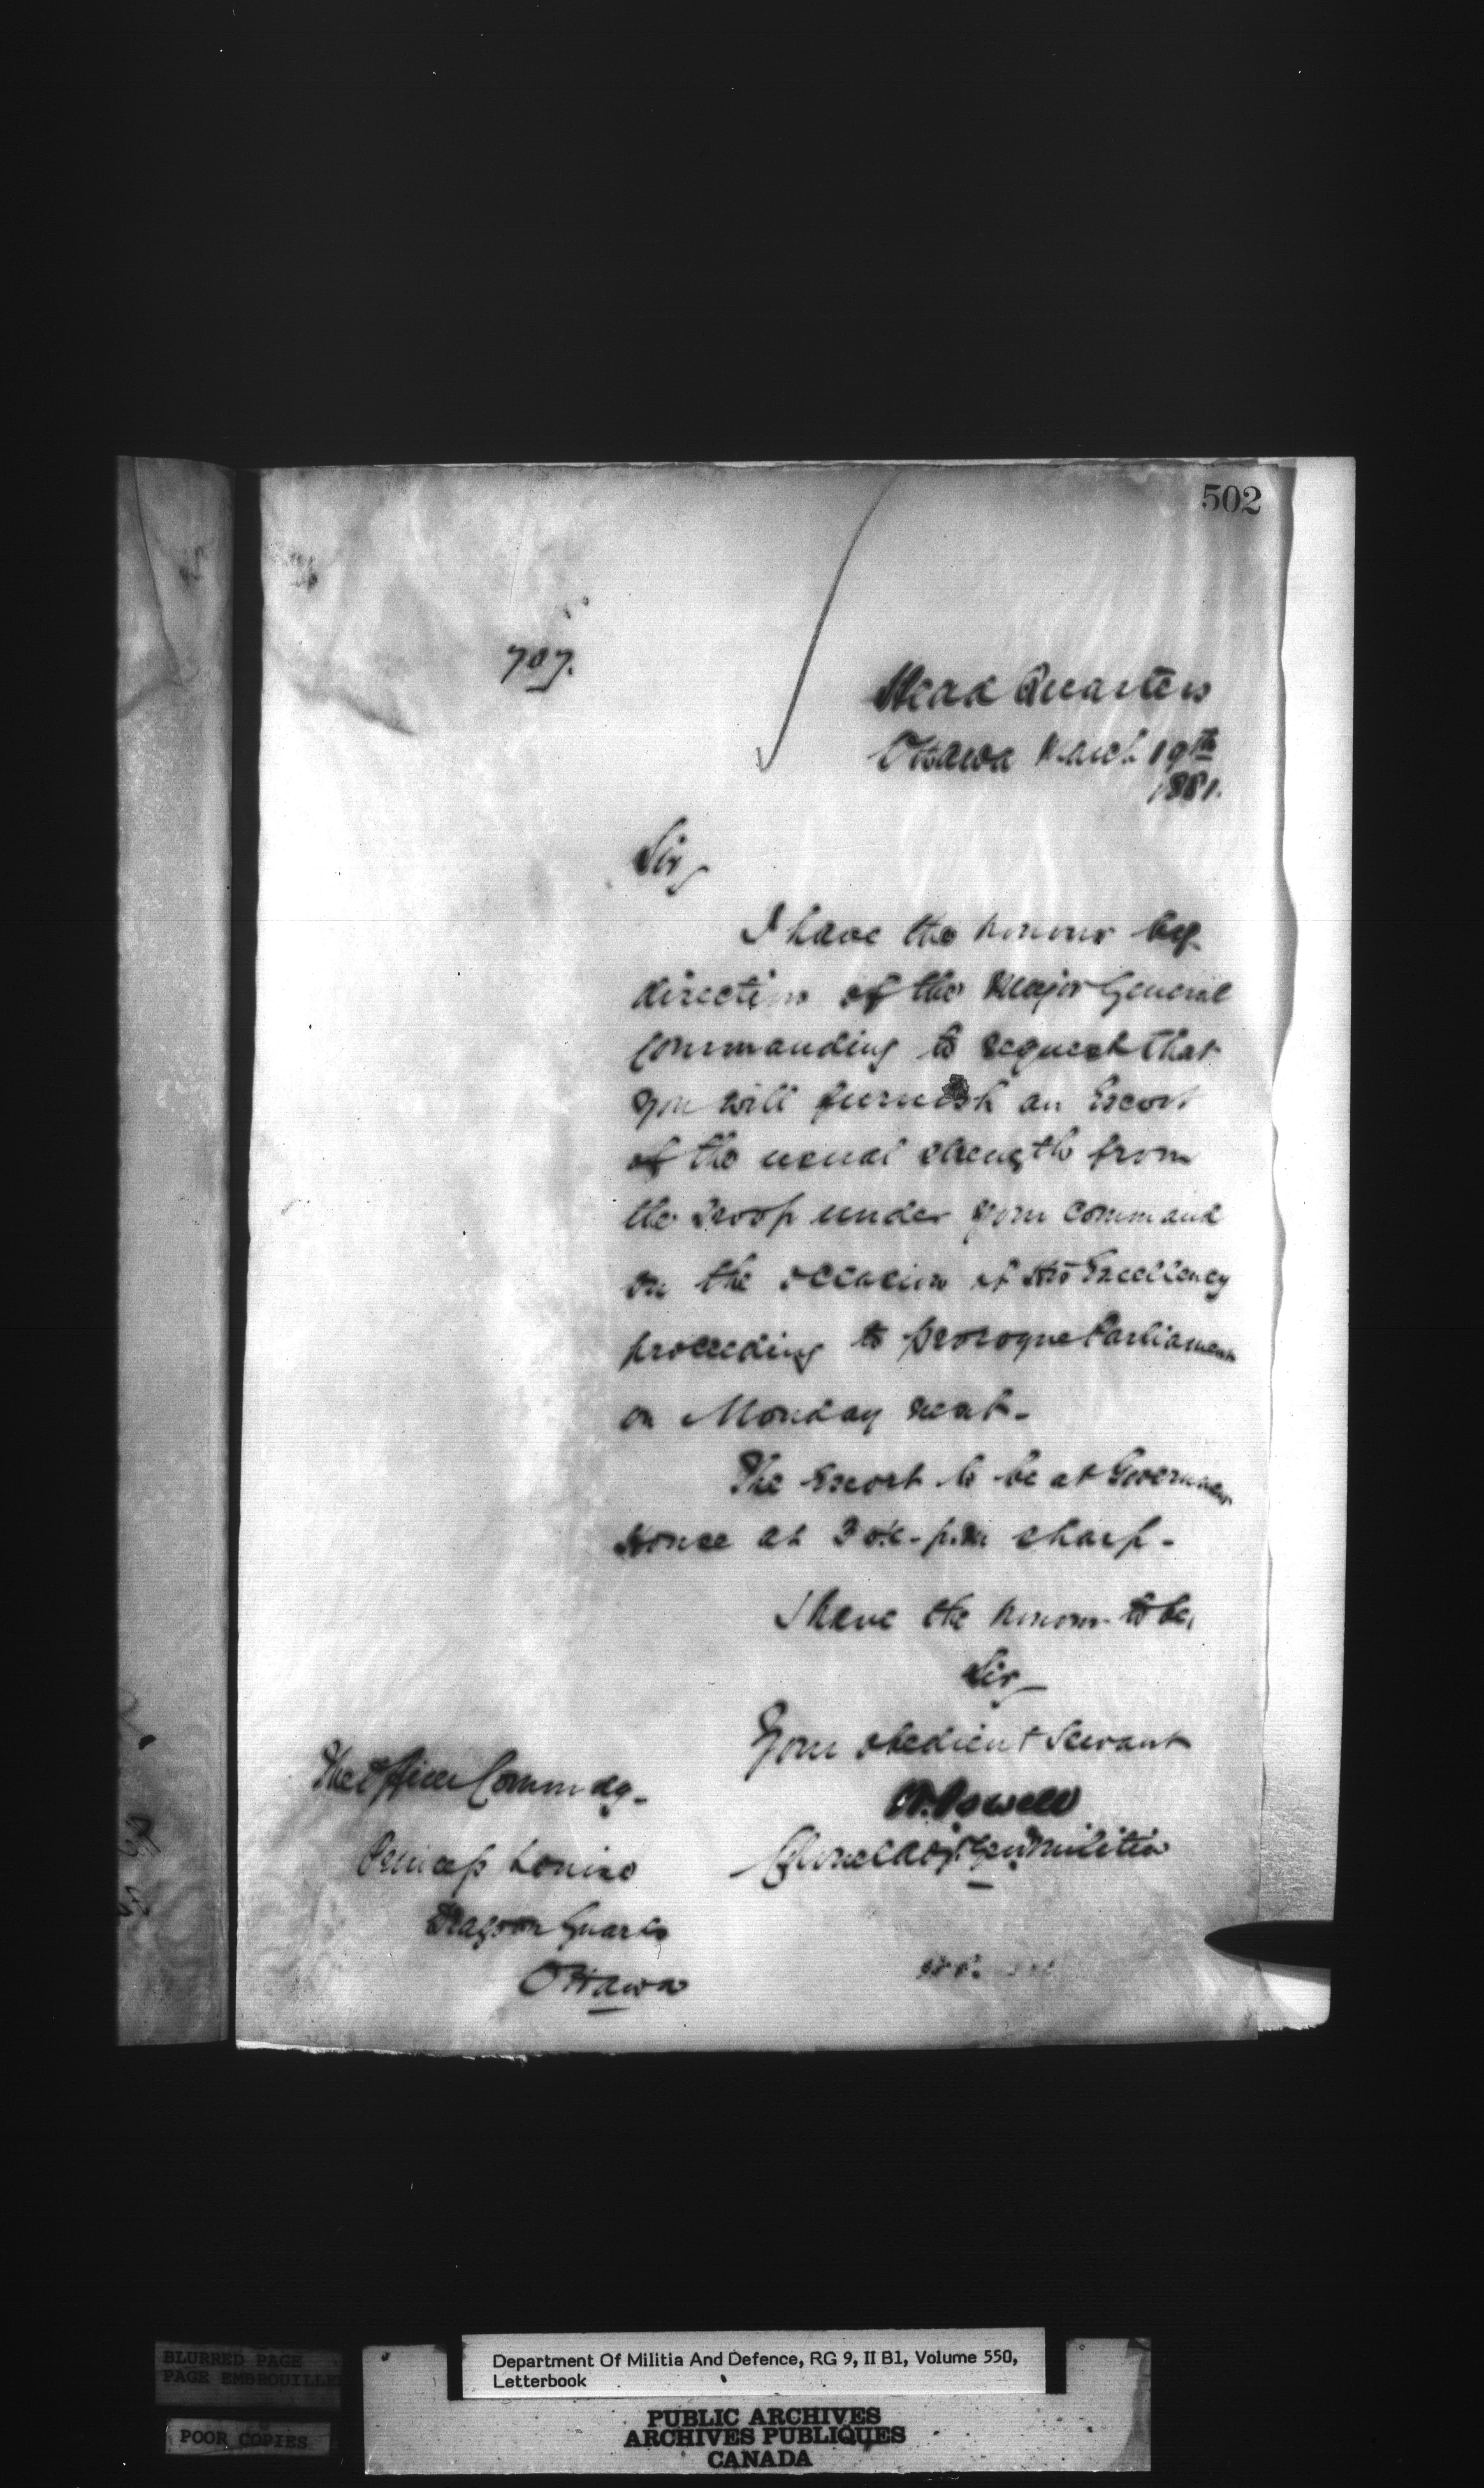 502
707.
Head Quarters
Ottawa March 19th
1881.
Sir,
I have the honour by
direction of the Major General
Commanding to request that
you will furnish an Escort
of the usual strength from
the Troop under your command
on the occasion of His Excellency
proceeding to prorogue Parliament
on Monday next-
The Escort to be at Government
House at 3 o'c. p.m. sharp-
I have the honour to be,
Sir,
Your obedient Servant
W. Powell
Colonel Adj. Gen. Militia
The Officer Commdg-
Princess Louise
Dragoon Guards
Ottawa
BLURRED PAGE
PAGE EMBROUILLE
POOR COPIES
Department Of Militia And Defence, RG 9, II B1, Volume 550,
Letterbook
PUBLIC ARCHIVES
ARCHIVES PUBLIQUES
CANADA